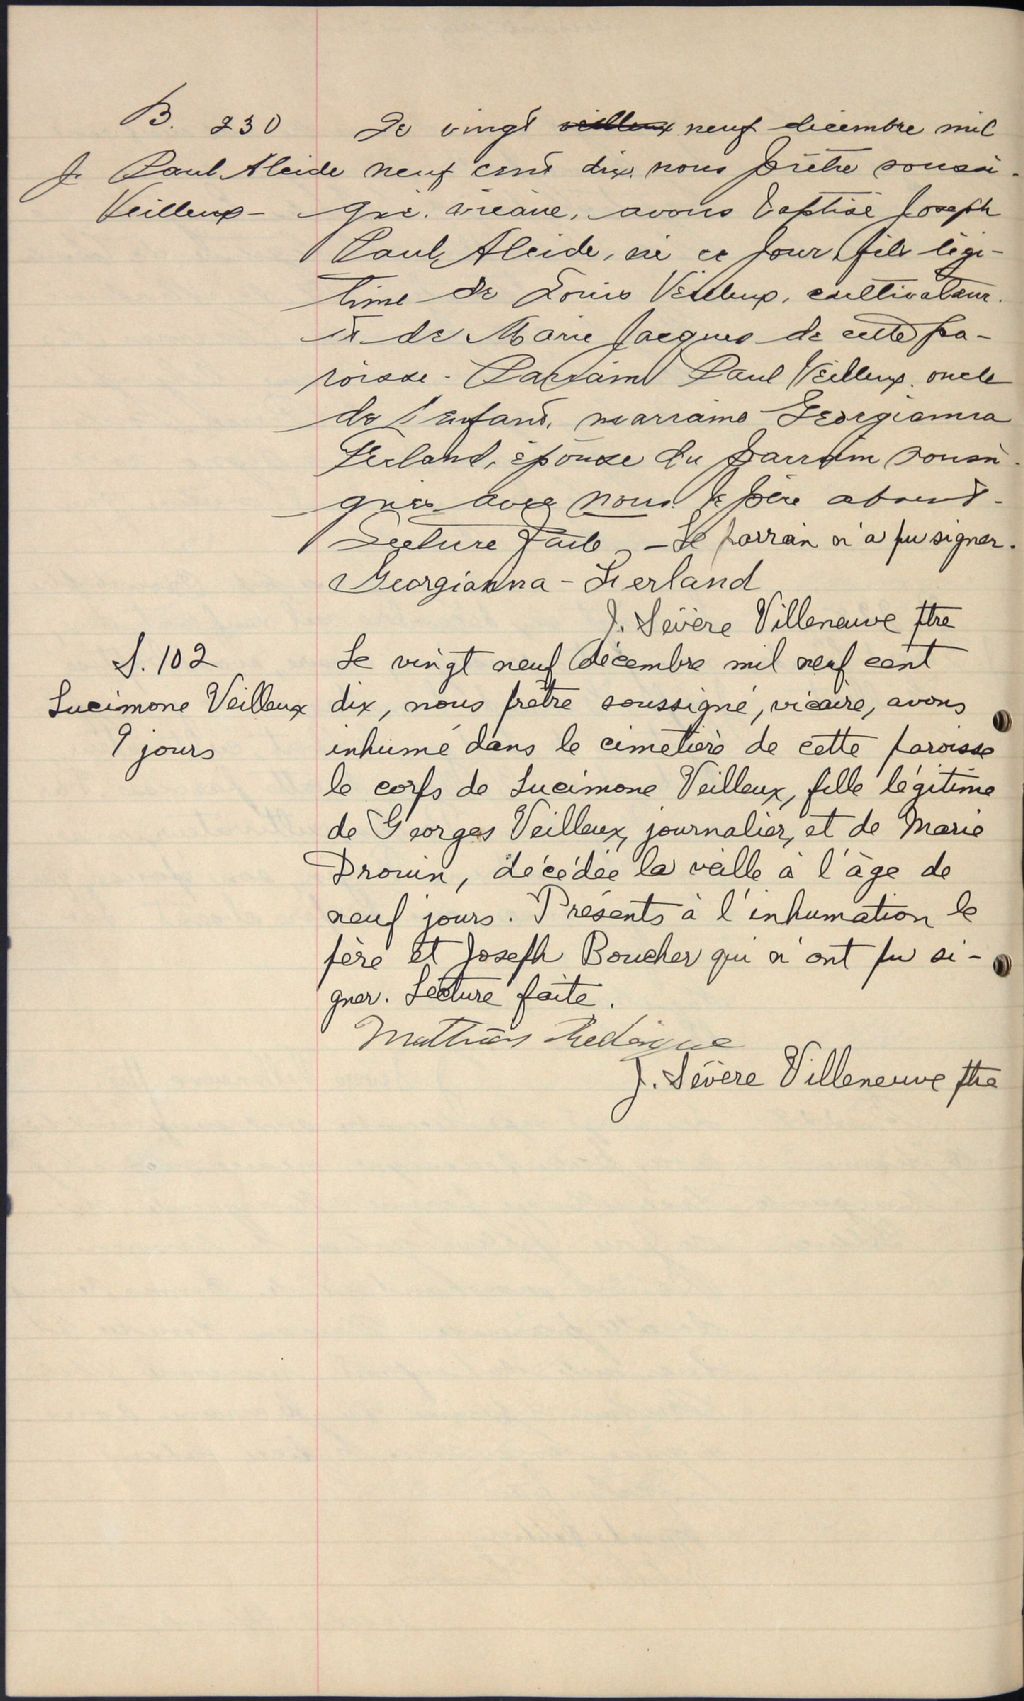 B. 230
J. Paul Alcide
Veilleux -
Le vingt veilleux neuf décembre mil
neuf cent dix, nous prêtre soussi-
gné, vicaire, avons baptisé Joseph
Paul, Alcide, né ce jour, fils légi-
time de Louis Veilleux, cultivateur
et de Marie Jacques de cette pa-
roisse - Parrain Paul Veilleux, oncle
de l'enfant, marraine Georgianna
Ferland, épouse du parrain soussi-
gnés avec nous, le père absent -
Lecture faite - Le parrain n'a pu signer.
Georgianna - Ferland
J. Sévère Villeneuve ptre
S. 102
Lucimone Veilleux
9 jours
Le vingt neuf décembre mil neuf cent
dix, nous prêtre soussigné, vicaire, avons
inhumé dans le cimetière de cette paroisse
le corps de Lucimone Veilleux, fille légitime
de Georges Veilleux, journalier, et de Marie
Drouin, décédée la veille à l'âge de
neuf jours. Présents à l'inhumation le
père et Joseph Boucher qui n'ont pu si-
gner. Lecture faite.
Mathias
J. Sévère Villeneuve ptre